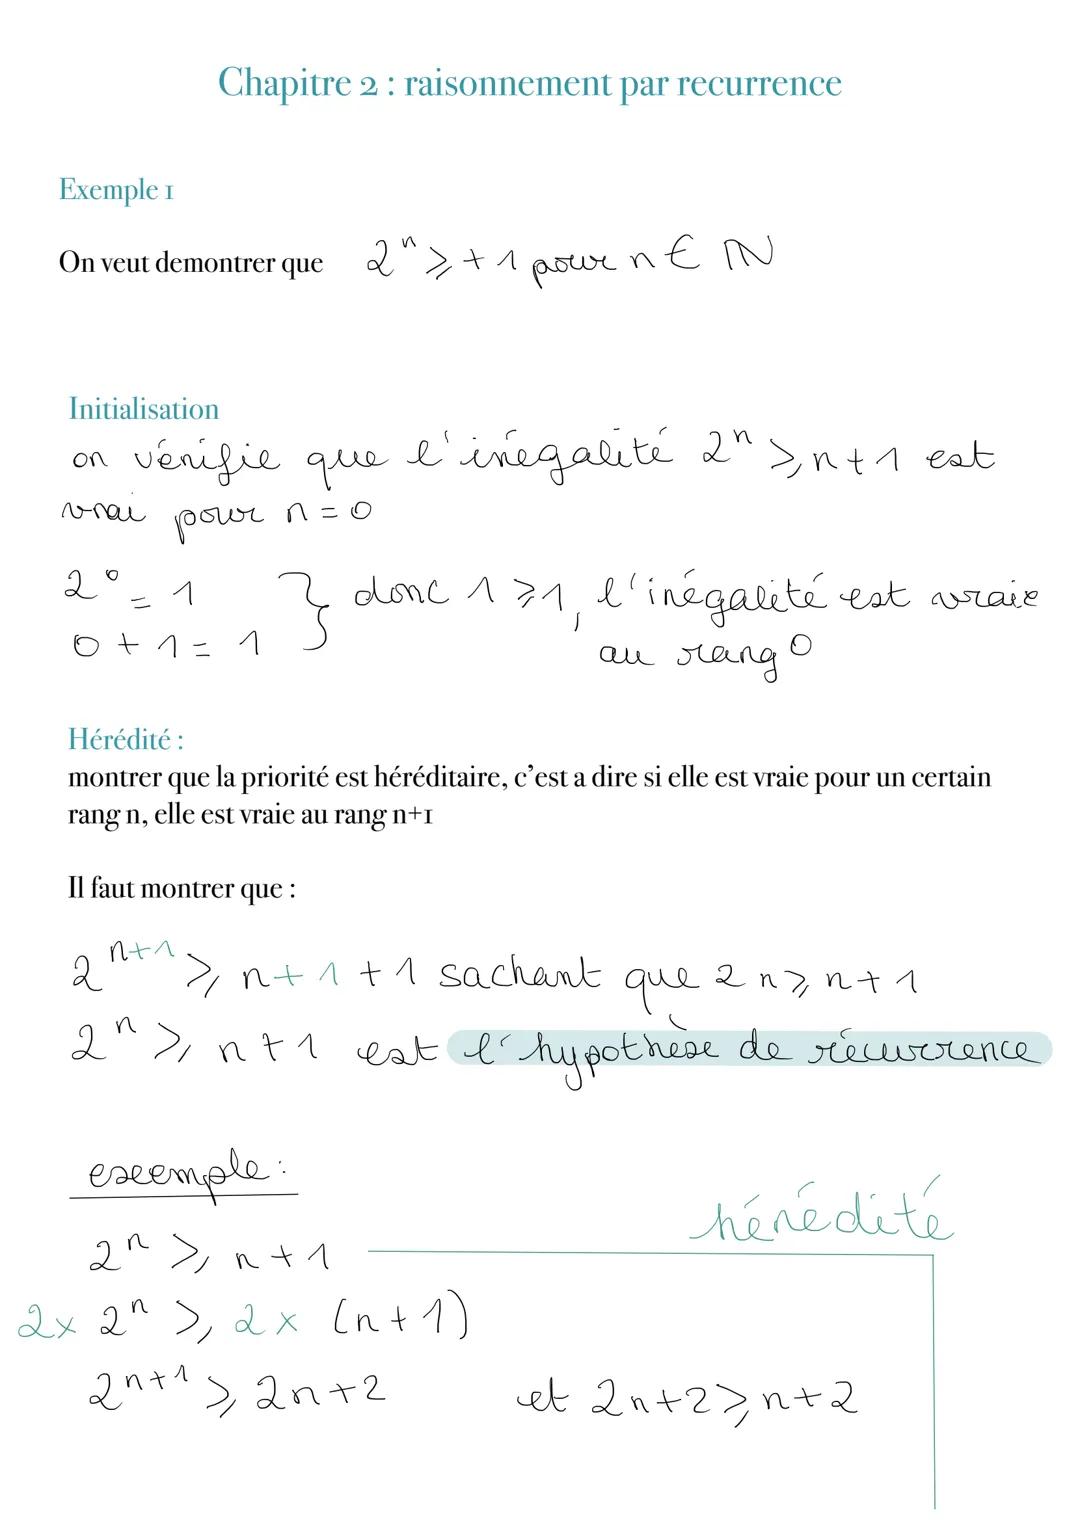 Chapitre 2 : raisonnement par recurrence
Exemple 1
On veut demontrer que 2ⁿ ⩾ + 1 pour n ∈ ℕ
Initialisation
on vérifie que l'inégalité 2ⁿ ⩾ n + 1 est
vrai pour n = 0
2⁰ = 1 } donc 1 ⩾ 1, l'inégalité est vraie
0 + 1 = 1 au rang 0
Hérédité :
montrer que la priorité est héréditaire, c’est a dire si elle est vraie pour un certain
rang n, elle est vraie au rang n+1
Il faut montrer que :
2ⁿ⁺¹ ⩾ n + 1 + 1 sachant que 2 n ⩾ n + 1
2ⁿ ⩾ n + 1 est l'hypothèse de récurrence
exemple :
hérédité
2ⁿ ⩾ n + 1
2x 2ⁿ ⩾ 2x (n + 1)
2ⁿ⁺¹ ⩾ 2n + 2 et 2n + 2 ⩾ n + 2